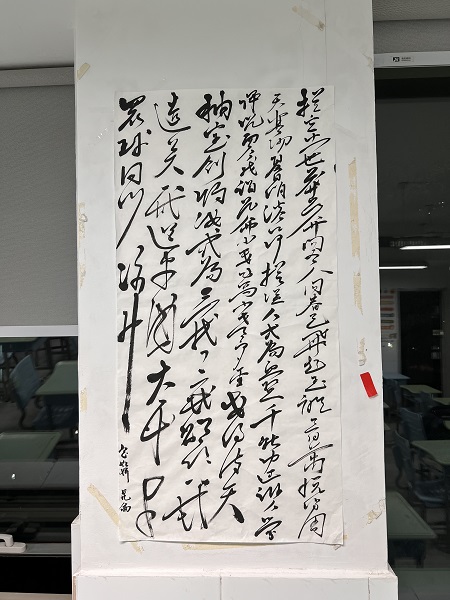 横空出世莽昆仑阅尽人间春色飞起玉龙三百万搅得周
天寒彻夏日消溶江河横溢人或为鱼鳖千秋功罪谁人曾与
评说而今我谓昆仑不要这高不要这多雪安得倚天
抽宝剑把汝裁为三截一截赠欧一截
遗美一截还东国太平世界
环球同此凉热
念奴娇 昆仑